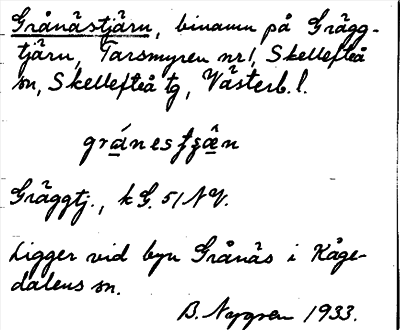 Grånästjärn, binamn på Grägg-
tjärn, Tarsmyren nr 1, Skellefteå
sn, Skellefteå tg, Västerb. l.
gránestjän
Gräggtj., kG. 51 NV.
Ligger vid byn Grånäs i Kåge-
dalens sn.
B. Nygren 1933.